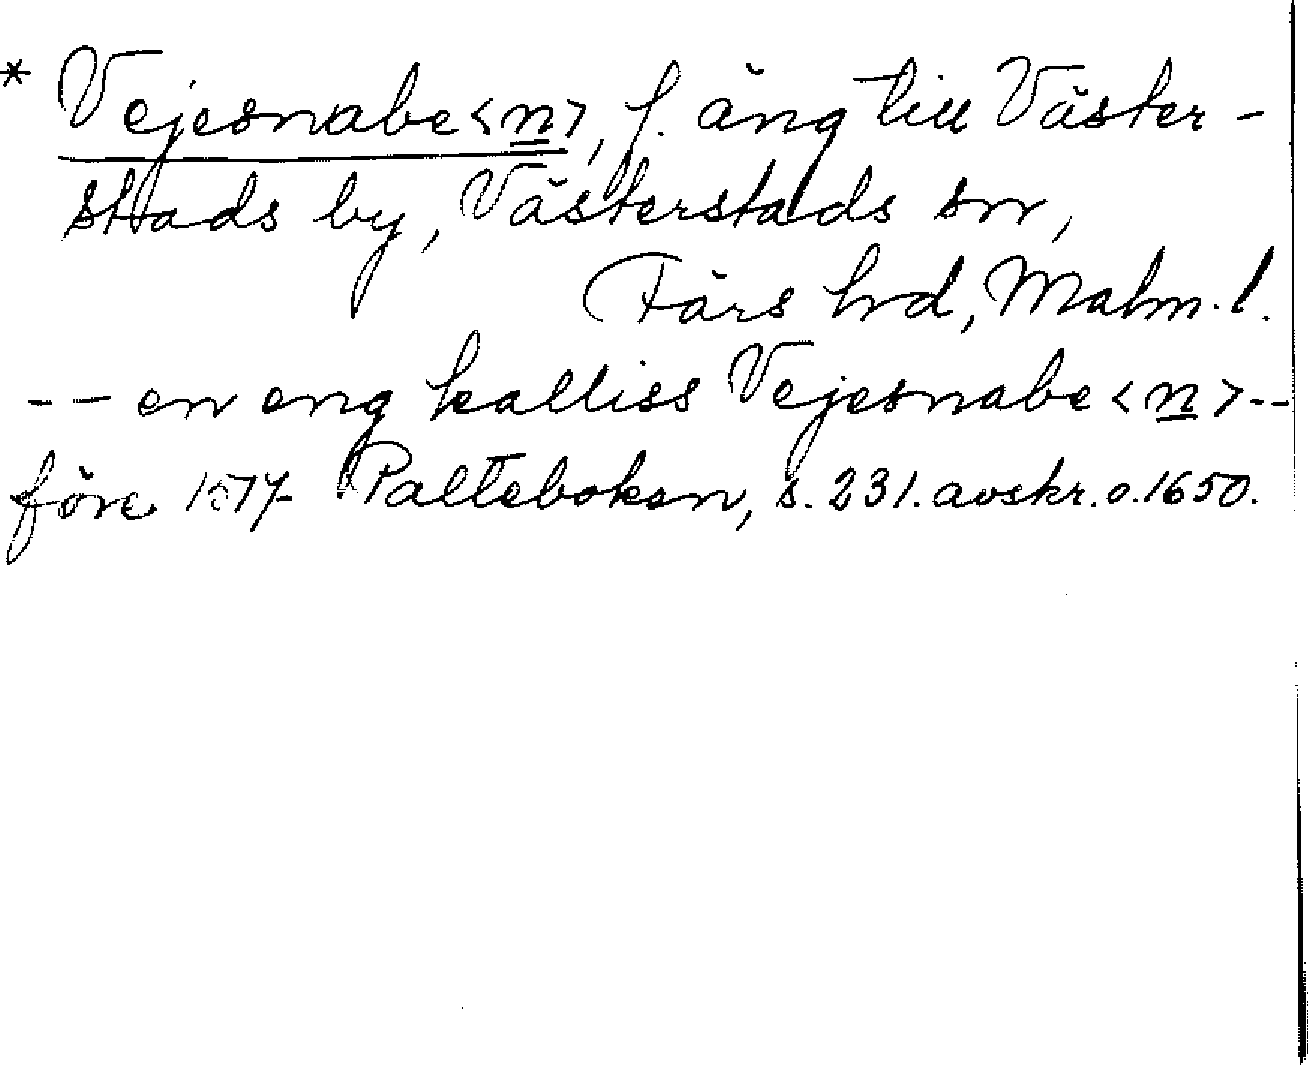 * Vejesnabe<n>, f. äng till Väster-
stads by, Västerstads sn,
Färs hd, Malm. l.
-- en eng kalliss Vejesnabe<n>--
före 1517 Palteboken, s. 231. avskr. o. 1650.